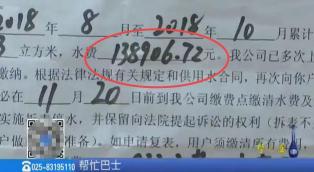 2018 年 8 月至 2018 年 10 月累计
立方米，水费 138906.72 元。我公司已多次上
缴纳。根据法律法规有关规定和供用水合同，再次向你户
必在 11 月 20 日前到我公司缴费点缴清水费及
实施拆表停水，并保留向法院提起诉讼的权利（拆表不
户做 准备）。如申请复表，用户须缴清所有费用，
025-83195110 帮忙巴士